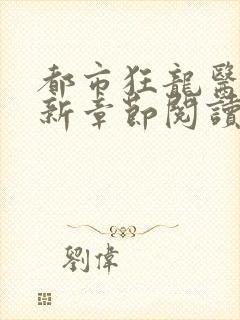 都市狂龍醫
新章節閱讀
劉偉